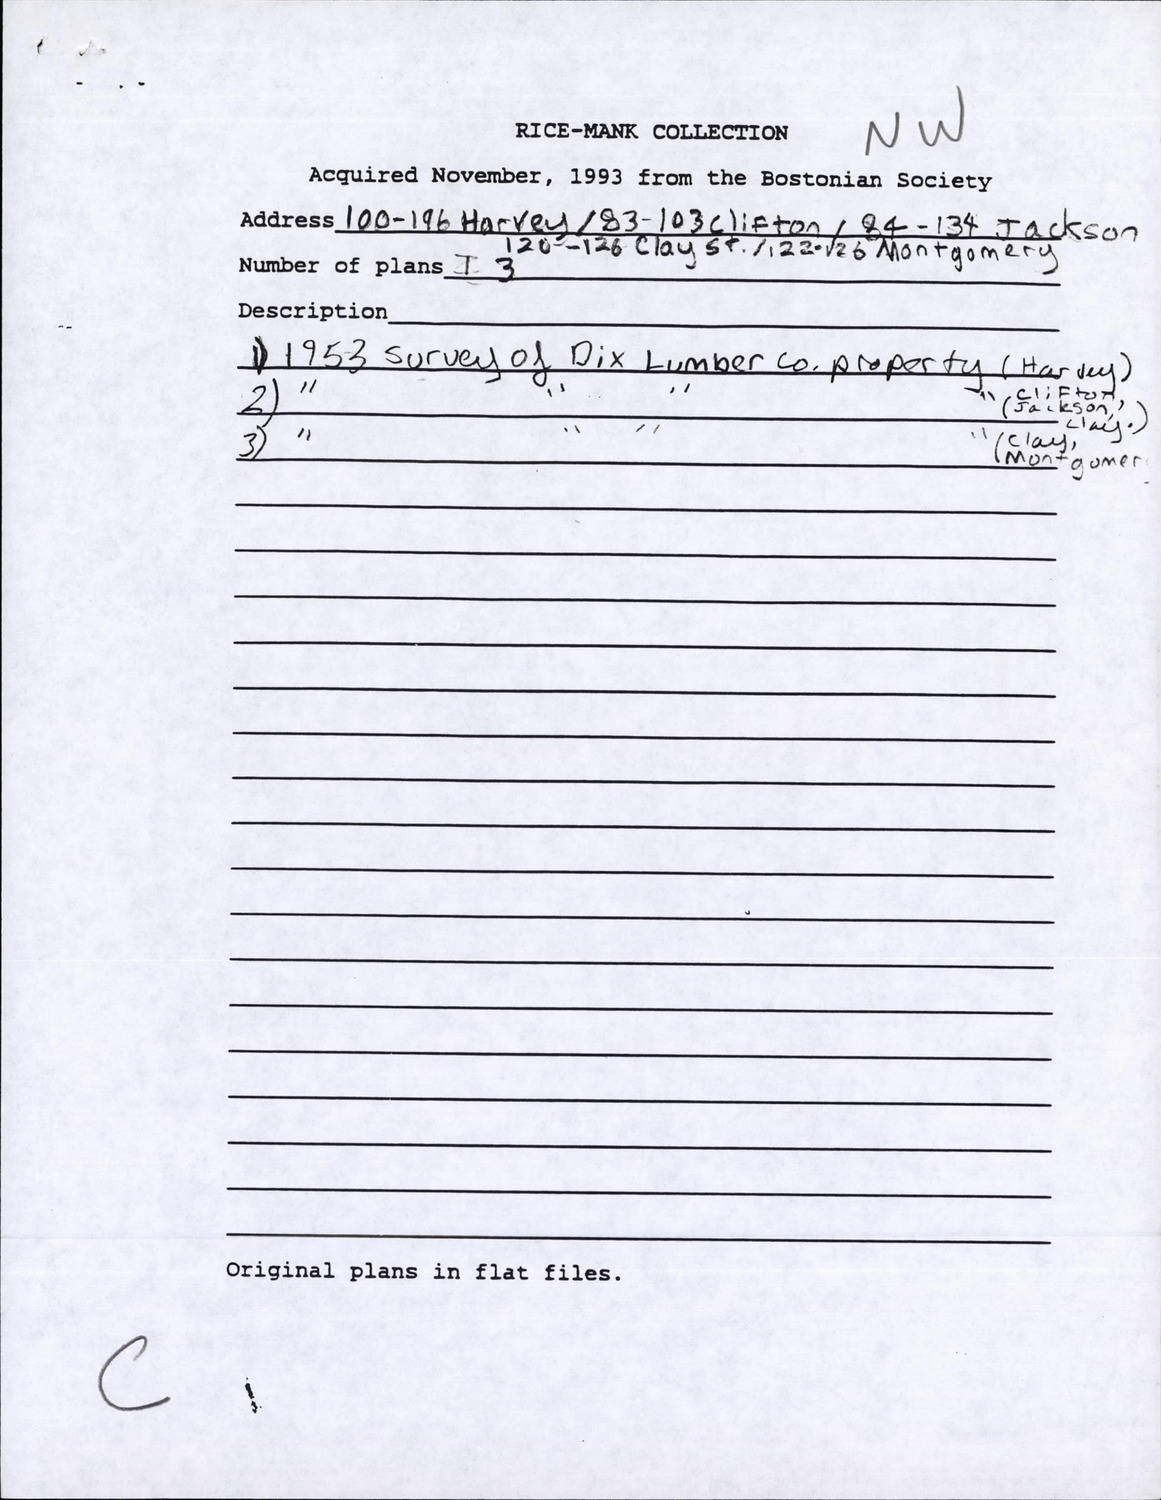 NW
RICE-MANK COLLECTION
Acquired November, 1993 from the Bostonian Society
Address 100-196 Harvey / 83-103 Clifton / 84-134 Jackson
120-126 Clay St. / 122-126 Montgomery
Number of plans 3
Description
1) 1953 Survey of Dix Lumber Co. property (Harvey)
2) " " " " (Clifton,
Jackson,
Clay.)
3) " " " " (Clay,
Montgomer
Original plans in flat files.
C